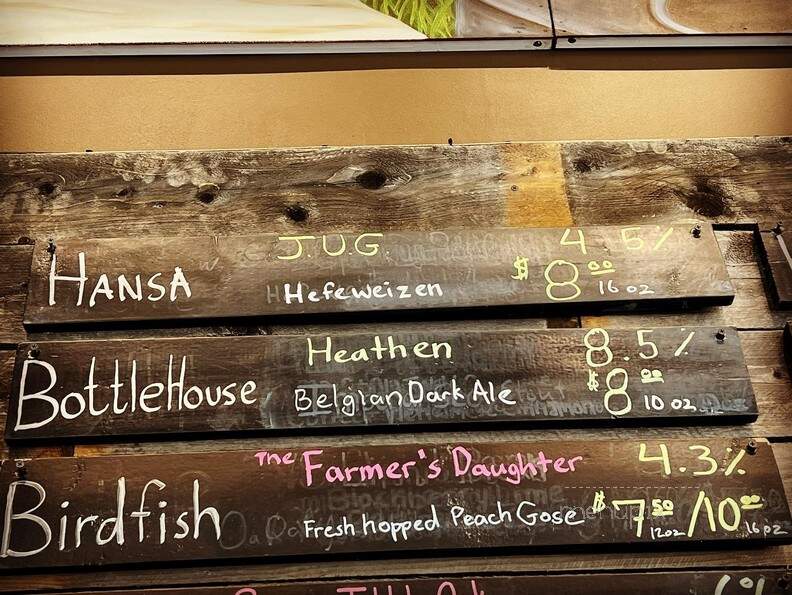 J.U.G. 4.5%
HANSA Hefeweizen $8.00 16 oz
Heathen 8.5%
BottleHouse Belgian Dark Ale $8.00 10 oz
The Farmer's Daughter 4.3%
Birdfish Fresh hopped Peach Gose $7.50 12oz / 10.00 16 oz